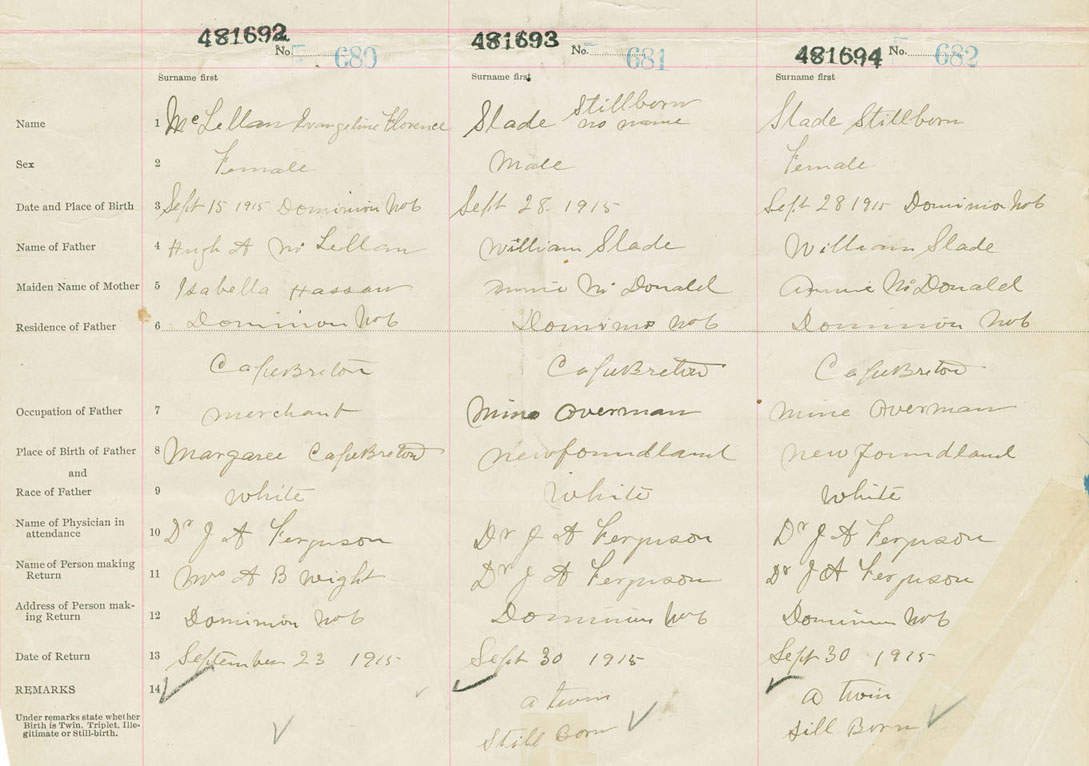 481692 No. 680 481693 No. 681 481694 No. 682
Surname first Surname first Surname first
Name 1 McLellan Evangeline Florence Slade Stillborn no name Slade Stillborn
Sex 2 Female Male Female
Date and Place of Birth 3 Sept 15 1915 Dominion No 6 Sept 28 1915 Sept 28 1915 Dominion No 6
Name of Father 4 Hugh A McLellan William Slade William Slade
Maiden Name of Mother 5 Isabella Hassan Annie McDonald Annie McDonald
Residence of Father 6 Dominion No 6 Dominion No 6 Dominion No 6
Cape Breton Cape Breton Cape Breton
Occupation of Father 7 merchant Mine Overman mine Overman
Place of Birth of Father 8 Margaree Cape Breton newfoundland newfoundland
and
Race of Father 9 white White White
Name of Physician in attendance 10 Dr J A Ferguson Dr J A Ferguson Dr J A Ferguson
Name of Person making Return 11 Mrs A B Dr J A Ferguson Dr J A Ferguson
Address of Person mak-
ing Return 12 Dominion No 6 Dominion No 6 Dominion No 6
Date of Return 13 September 23 1915 Sept 30 1915 Sept 30 1915
REMARKS 14 a twin a twin
Under remarks state whether
Birth is Twin. Triplet, Ille-
gitimate or Still-birth.
Still Born Still Born